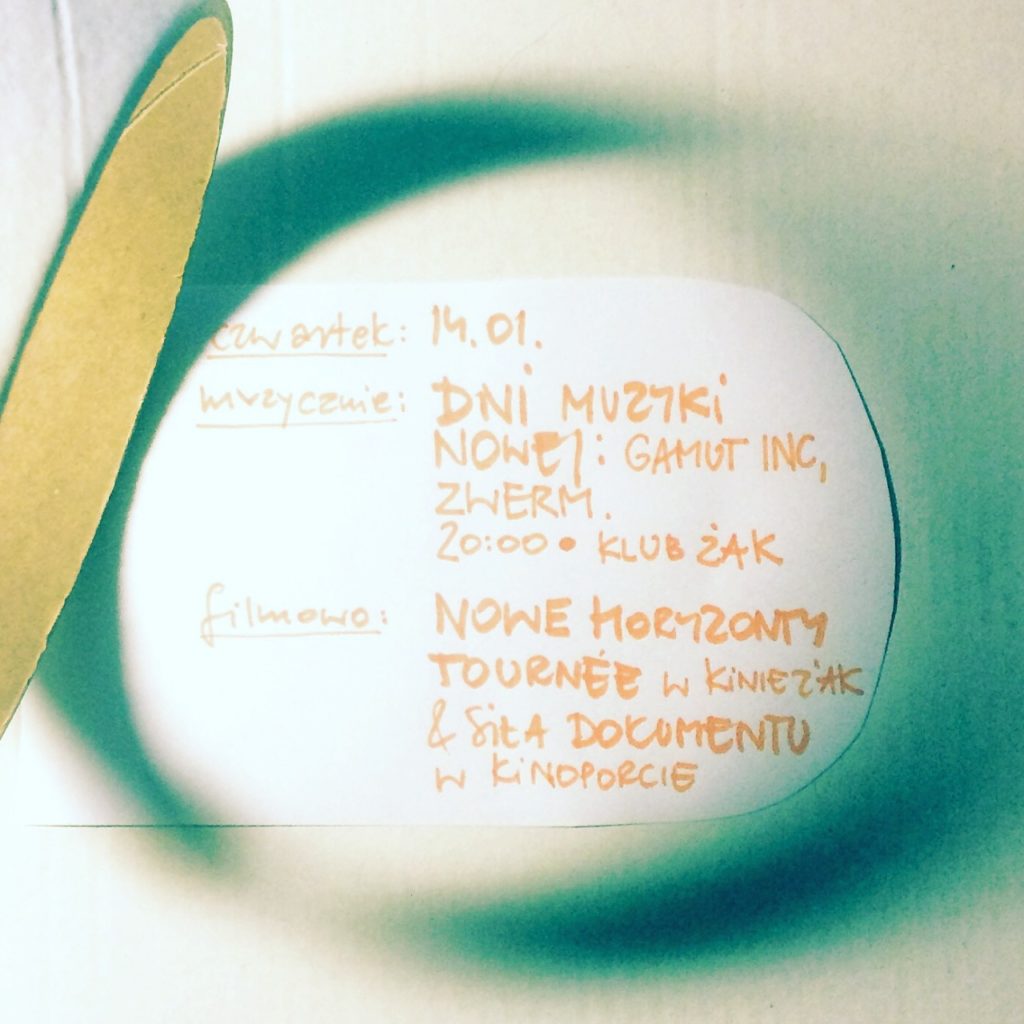 czwartek: 14.01.
muzycznie: DNI MUZYKI
NOWEJ: GAMUT INC,
ZWERM.
20:00 • KLUB ŻAK
filmowo: NOWE HORYZONTY
TOURNÉE w KINIE ŻAK
& SIŁA DOKUMENTU
w KINOPORCIE